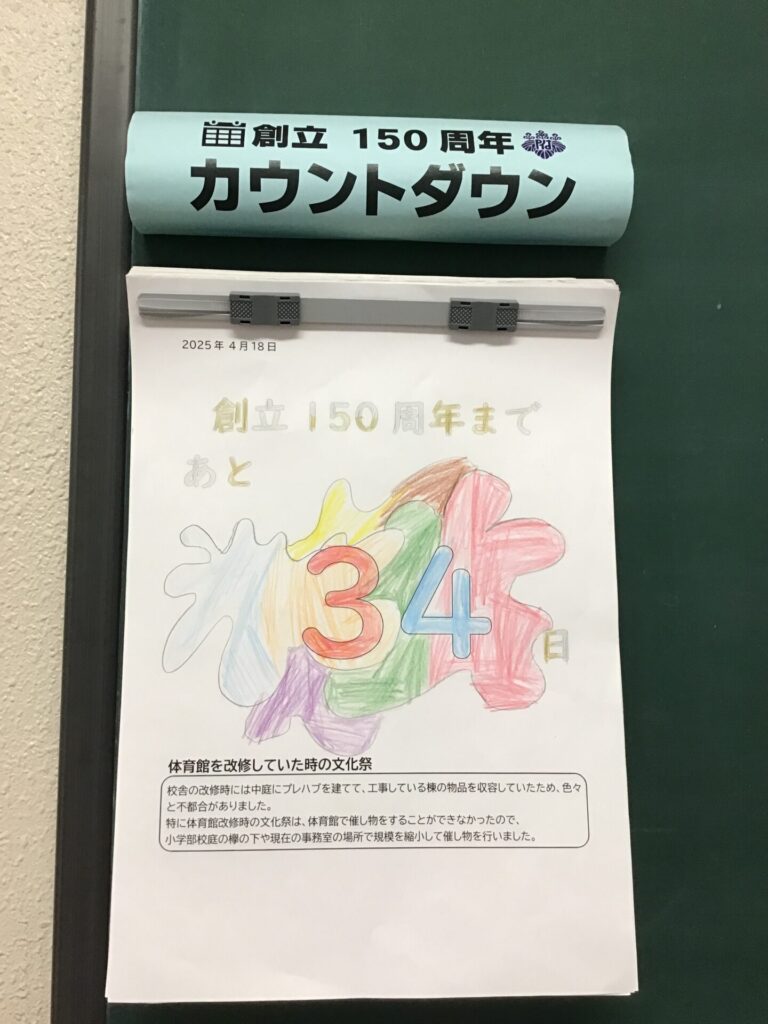 創立 150 周年
カウントダウン
2025年 4月18日
創立150周年まで
あと
34
日
体育館を改修していた時の文化祭
校舎の改修時には中庭にプレハブを建てて、工事している棟の物品を収容していたため、色々
と不都合がありました。
特に体育館改修時の文化祭は、体育館で催し物をすることができなかったので、
小学部校庭の欅の下や現在の事務室の場所で規模を縮小して催し物を行いました。